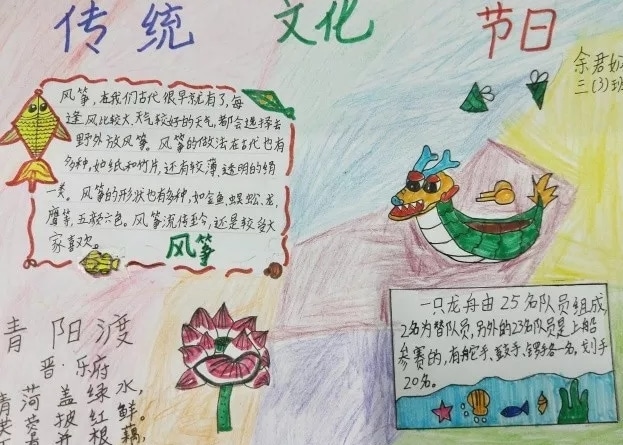 传统 文化 节日
余君
三(3)班
风筝,在我们古代很早就有了,每
逢风比较大,天气较好的天气,都会选择去
野外放风筝。风筝的做法在古代也有
多种,如纸和竹片,还有较薄、透明的绢
一类。风筝的形状也有多种,如金鱼、蜈蚣、龙、
鹰等,五颜六色。风筝流传至今,还是较受大
家喜欢。
风筝
一只龙舟由25名队员组成,
2名为替队员,另外的23名队员是上船
参赛的,有舵手、鼓手、锣手各一名。划手
20名。
青阳渡
晋·乐府
青菏盖绿水,
芙蓉披红鲜。
并根藕,